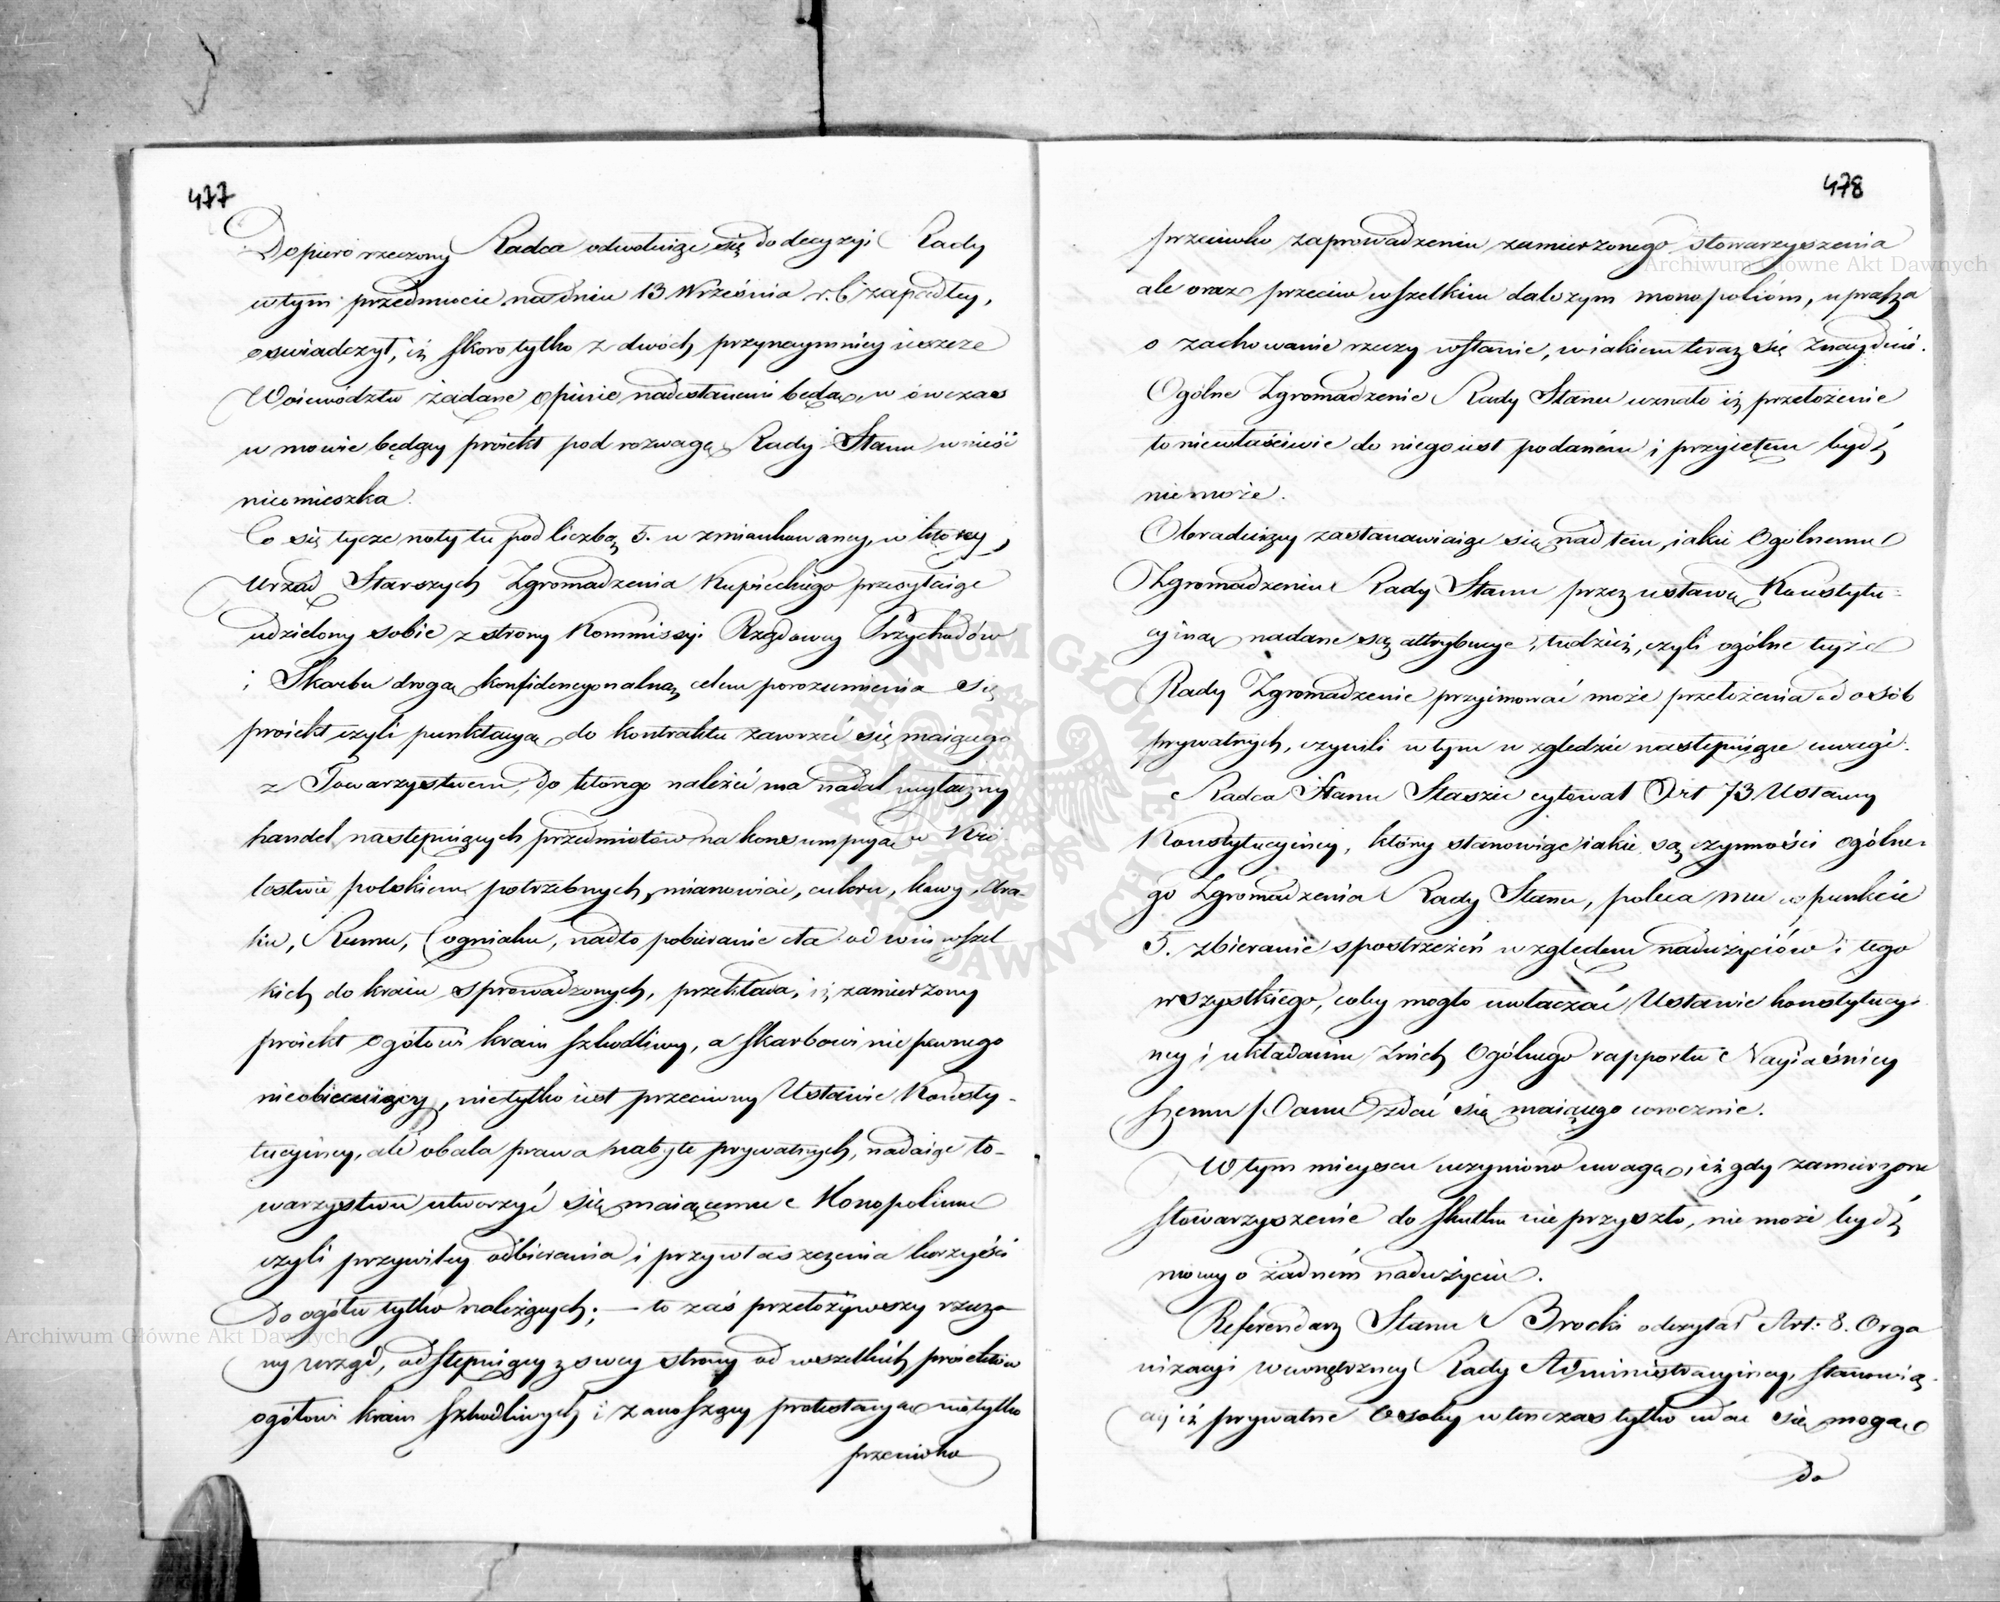 477
Dopiero rzeczony Radca odwołuiąc się do decyzyi Rady
w tym przedmiocie na dniu 13 Września r. b. zapadłey,
oswiadczył, iż skoro tylko z dwóch przynaymniey ieszcze
Woiewództw żądane opinie nadesłanemi będą, w ówczas
w mowie będący proiekt pod rozwagę Rady Stanu wnieść
nieomieszka.
Co się tycze noty tu pod liczbą 5. wzmiankowaney, w którey,
Urząd Starszych Zgromadzenia Kupieckiego przesyłaiąc
udzielony sobie z strony Kommissyi Rządowey Przychodów
i Skarbu drogą konfidencyonalną celem porozumienia się
proiekt czyli punktacyą do kontraktu zawrzeć się maiącego
z Towarzystwem, do którego należeć ma nadal wyłączny
handel następuiących przedmiotów na konsumpcyą w Kró
lestwie polskiem potrzebnych, mianowicie, cukru, kawy, Ara-
ku, Rumu, Cogniaku, nadto pobieranie cła od win wszel
kich do kraiu sprowadzonych, przekłada, iż zamierzony
proiekt ogółowi kraiu szkodliwy, a skarbowi nic pewnego
nieobiecuiący, nietylko iest przeciwny Ustawie Konsty-
tucyiney, ale obala prawa nabyte prywatnych, nadaiąc to-
warzystwu utworzyć się maiącemu Monopolium
czyli przywiley odbierania i przywłaszczenia korzyści
do ogółu tylko należących; — to zaś przełożywszy rzeczo
ny urząd, odstępuiący z swey strony od wszelkich proiektów
ogółowi kraiu szkodliwych i zanoszący protestacyą nietylko
przeciwko
478
przeciwko zaprowadzeniu zamierzonego stowarzyszenia
ale oraz przeciw wszelkim dalszym monopoliom, uprasza
o zachowanie rzeczy w stanie, w iakiem teraz się znayduie.
Ogólne Zgromadzenie Rady Stanu uznało iż przełożenie
to niewłaściwie do niego iest podanem i przyiętem bydź
nie może.
Obraduiący zastanawiaiąc się nad tem, iakie Ogólnemu
Zgromadzeniu Rady Stanu przez ustawę Konstytu-
cyiną nadane są attrybucye, tudzież, czyli ogólne teyże
Rady Zgromadzenie przyimować może przełożenia od osób
prywatnych, czynili w tym względzie następuiące uwagi.
Radca Stanu Staszic cytował Art 73 Ustawy
Konstytucyiney, który stanowiąc iakie są czynności ogólne-
go Zgromadzenia Rady Stanu, poleca mu w punkcie
5. zbieranie spostrzeżeń względem nadużyciów i tego
wszystkiego, coby mogło uwłaczać Ustawie konstytucyi
ney i układaniu z nich Ogólnego rapportu Nayiaśniey
szemu Panu zdać się maiącego corocznie.
W tym mieyscu uczyniono uwagę, iż gdy zamierzone
stowarzyszenie do skutku nie przyszło, nie może bydź
mowy o żadnem nadużyciu.
Referendarz Stanu Brocki odczytał Art: 8. Orga
nizacyi wewnętrzney Rady Administracyiney, stanowią-
cy iż prywatne Osoby w tenczas tylko udać się mogą
do
Archiwum Główne Akt Dawnych
Archiwum Główne Akt Dawnych
ARCHIWUM GŁÓWNE AKT DAWNYCH